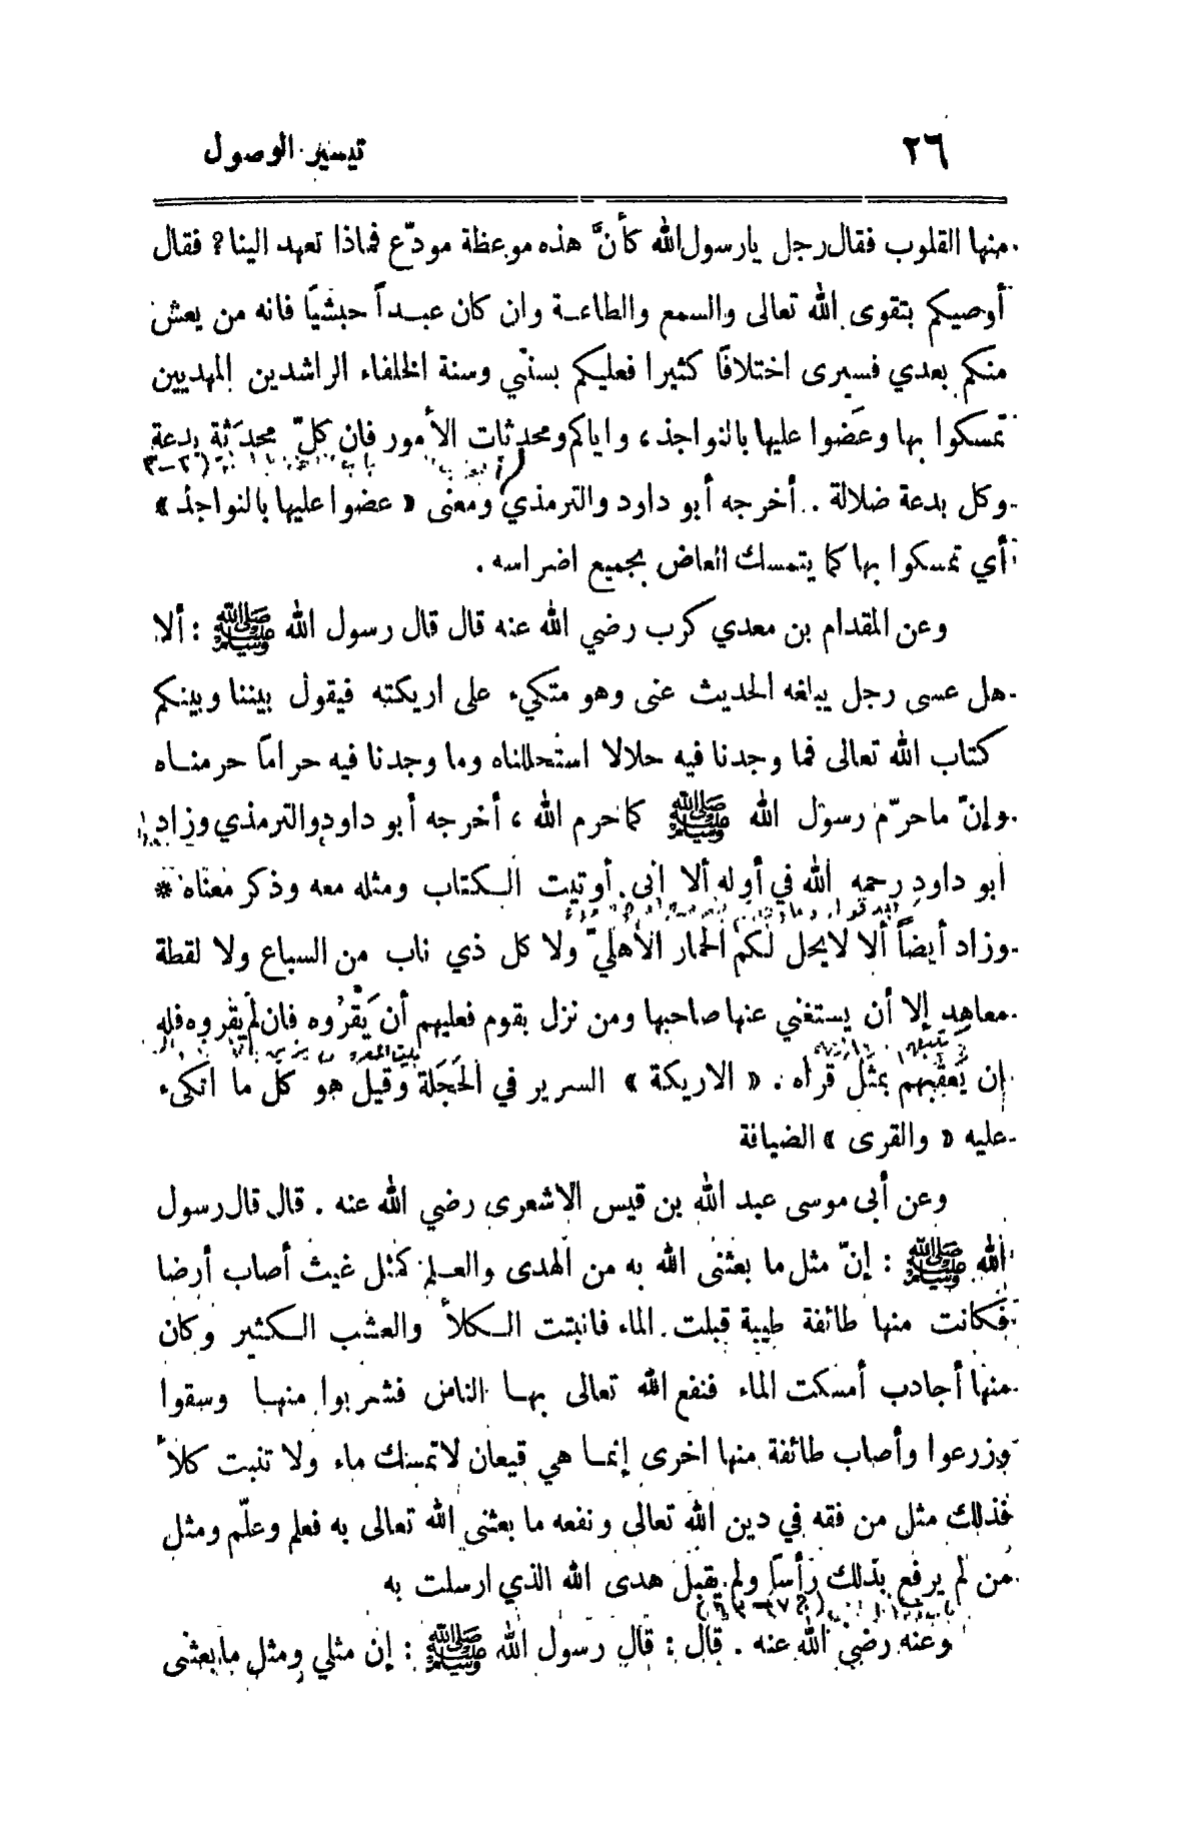 ٢٦
تيسير الوصول
منها القلوب فقال رجل يارسول الله كأنَّ هذه موعظة مودّع فماذا تعهد الينا؟ فقال
أوصيكم بتقوى الله تعالى والسمع والطاعة وان كان عبداً حبشيًا فانه من يعش
منكم بعدي فسيرى اختلافًا كثيرا فعليكم بسنتي وسنة الخلفاء الراشدين المهديين
تمسكوا بها وعَضوا عليها بالنواجذ، واياكم ومحدثات الأمور فان كلّ محدَثة بدعة
وكل بدعة ضلالة . أخرجه أبو داود والترمذي ومعنى « عضوا عليها بالنواجذ »
أي تمسكوا بها كما يتمسك العاض بجميع اضراسه .
وعن المقدام بن معدي كرب رضي الله عنه قال قال رسول الله ﷺ : ألا
هل عسى رجل يبلغه الحديث عنى وهو متكيء على اريكته فيقول بيننا وبينكم
كتاب الله تعالى فما وجدنا فيه حلالا استحللناه وما وجدنا فيه حرامًا حرمناه
وإنّ ماحرّم رسول الله ﷺ كما حرم الله ، أخرجه أبو داود والترمذي وزاد
ابو داود رحمه الله في أوله ألا انى أوتيت الكتاب ومثله معه وذكر معناه *
وزاد أيضاً ألا لايحل لكم الحمار الأهليّ ولا كل ذي ناب من السباع ولا لقطة
معاهد إلا أن يستغني عنها صاحبها ومن نزل بقوم فعليهم أن يَقْرُوه فان لم يقروه فله
ان يُعقِبَهم بمثل قراه . « الاريكة » السرير في الحَجَلة وقيل هو كل ما اتكىء
عليه « والقرى » الضيافة
وعن أبى موسى عبد الله بن قيس الاشعرى رضي الله عنه . قال قال رسول
الله ﷺ : إنّ مثل ما بعثنى الله به من الهدى والعلم كمثل غيث أصاب أرضا
فكانت منها طائفة طيبة قبلت الماء فانبتت الكلأ والعشب الكثير وكان
منها أجادب أمسكت الماء فنفع الله تعالى بها الناس فشربوا منها وسقوا
وزرعوا وأصاب طائفة منها اخرى إنما هي قيعان لاتمسك ماء ولا تنبت كلأ
فذلك مثل من فقه في دين الله تعالى ونفعه ما بعثنى الله تعالى به فعلم وعلّم ومثل
من لم يرفع بذلك رأسًا ولم يقبل هدى الله الذي ارسلت به
وعنه رضي الله عنه . قال : قال رسول الله ﷺ : إن مثلي ومثل ما بعثنى